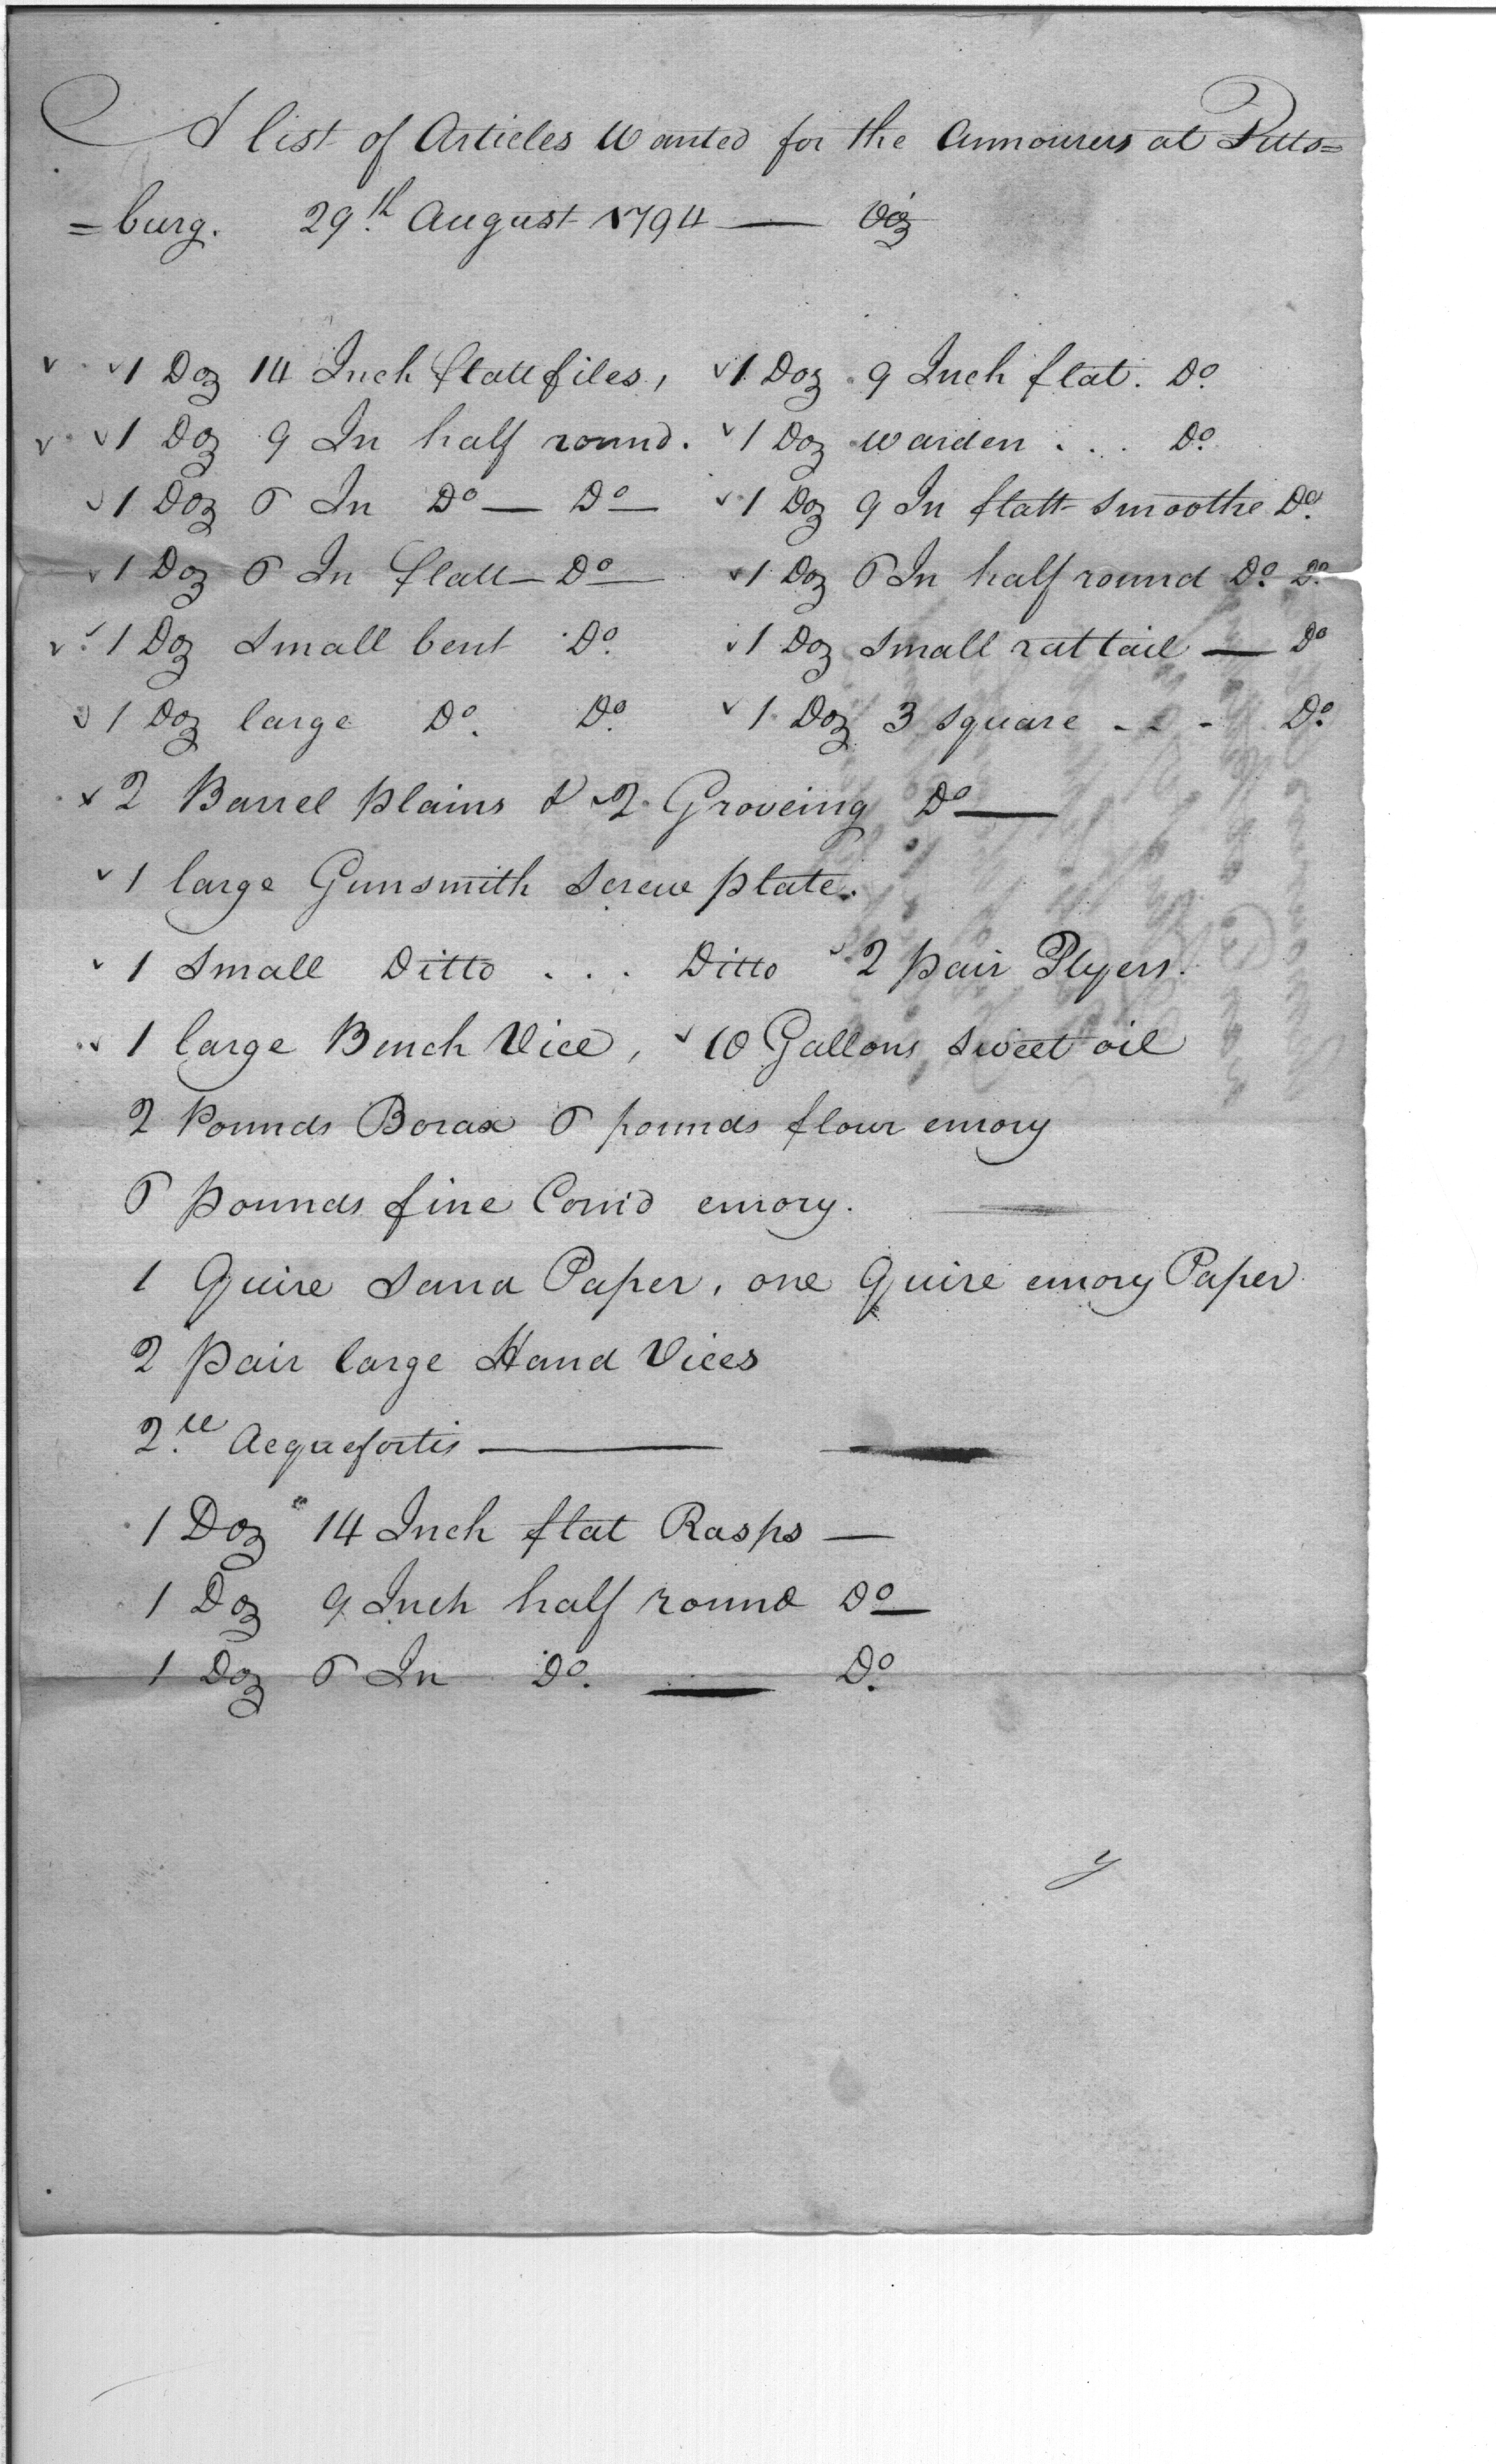 A list of Articles Wanted for the Armourers at Pitts=
=burg. 29th August 1794 — Viz
1 Doz 14 Inch flatt files, 1 Doz 9 Inch flat. Do
1 Doz 9 In half round. 1 Doz warden . . . Do
1 Doz 6 In Do — Do — 1 Doz 9 In flatt smoothe Do
1 Doz 6 In flatt — Do — 1 Doz 6 In half round Do Do
1 Doz Small bent Do 1 Doz Small rat tail — Do
1 Doz large Do. Do 1 Doz 3 square - - - Do
2 Barrel plains & 2 Groveing Do —
1 large Gunsmith Screw plate.
1 Small Ditto . . . Ditto 2 pair Plyers.
1 large Bench Vice, 10 Gallons Sweet oil
2 Pounds Borax 6 pounds flour emory
6 pounds fine Corn'd emory.
1 Quire Sand Paper, one Quire emory Paper
2 pair large Hand Vices
2 Acquefortis —
1 Doz 14 Inch flat Rasps —
1 Doz 9 Inch half round Do —
1 Doz 6 In Do. — Do